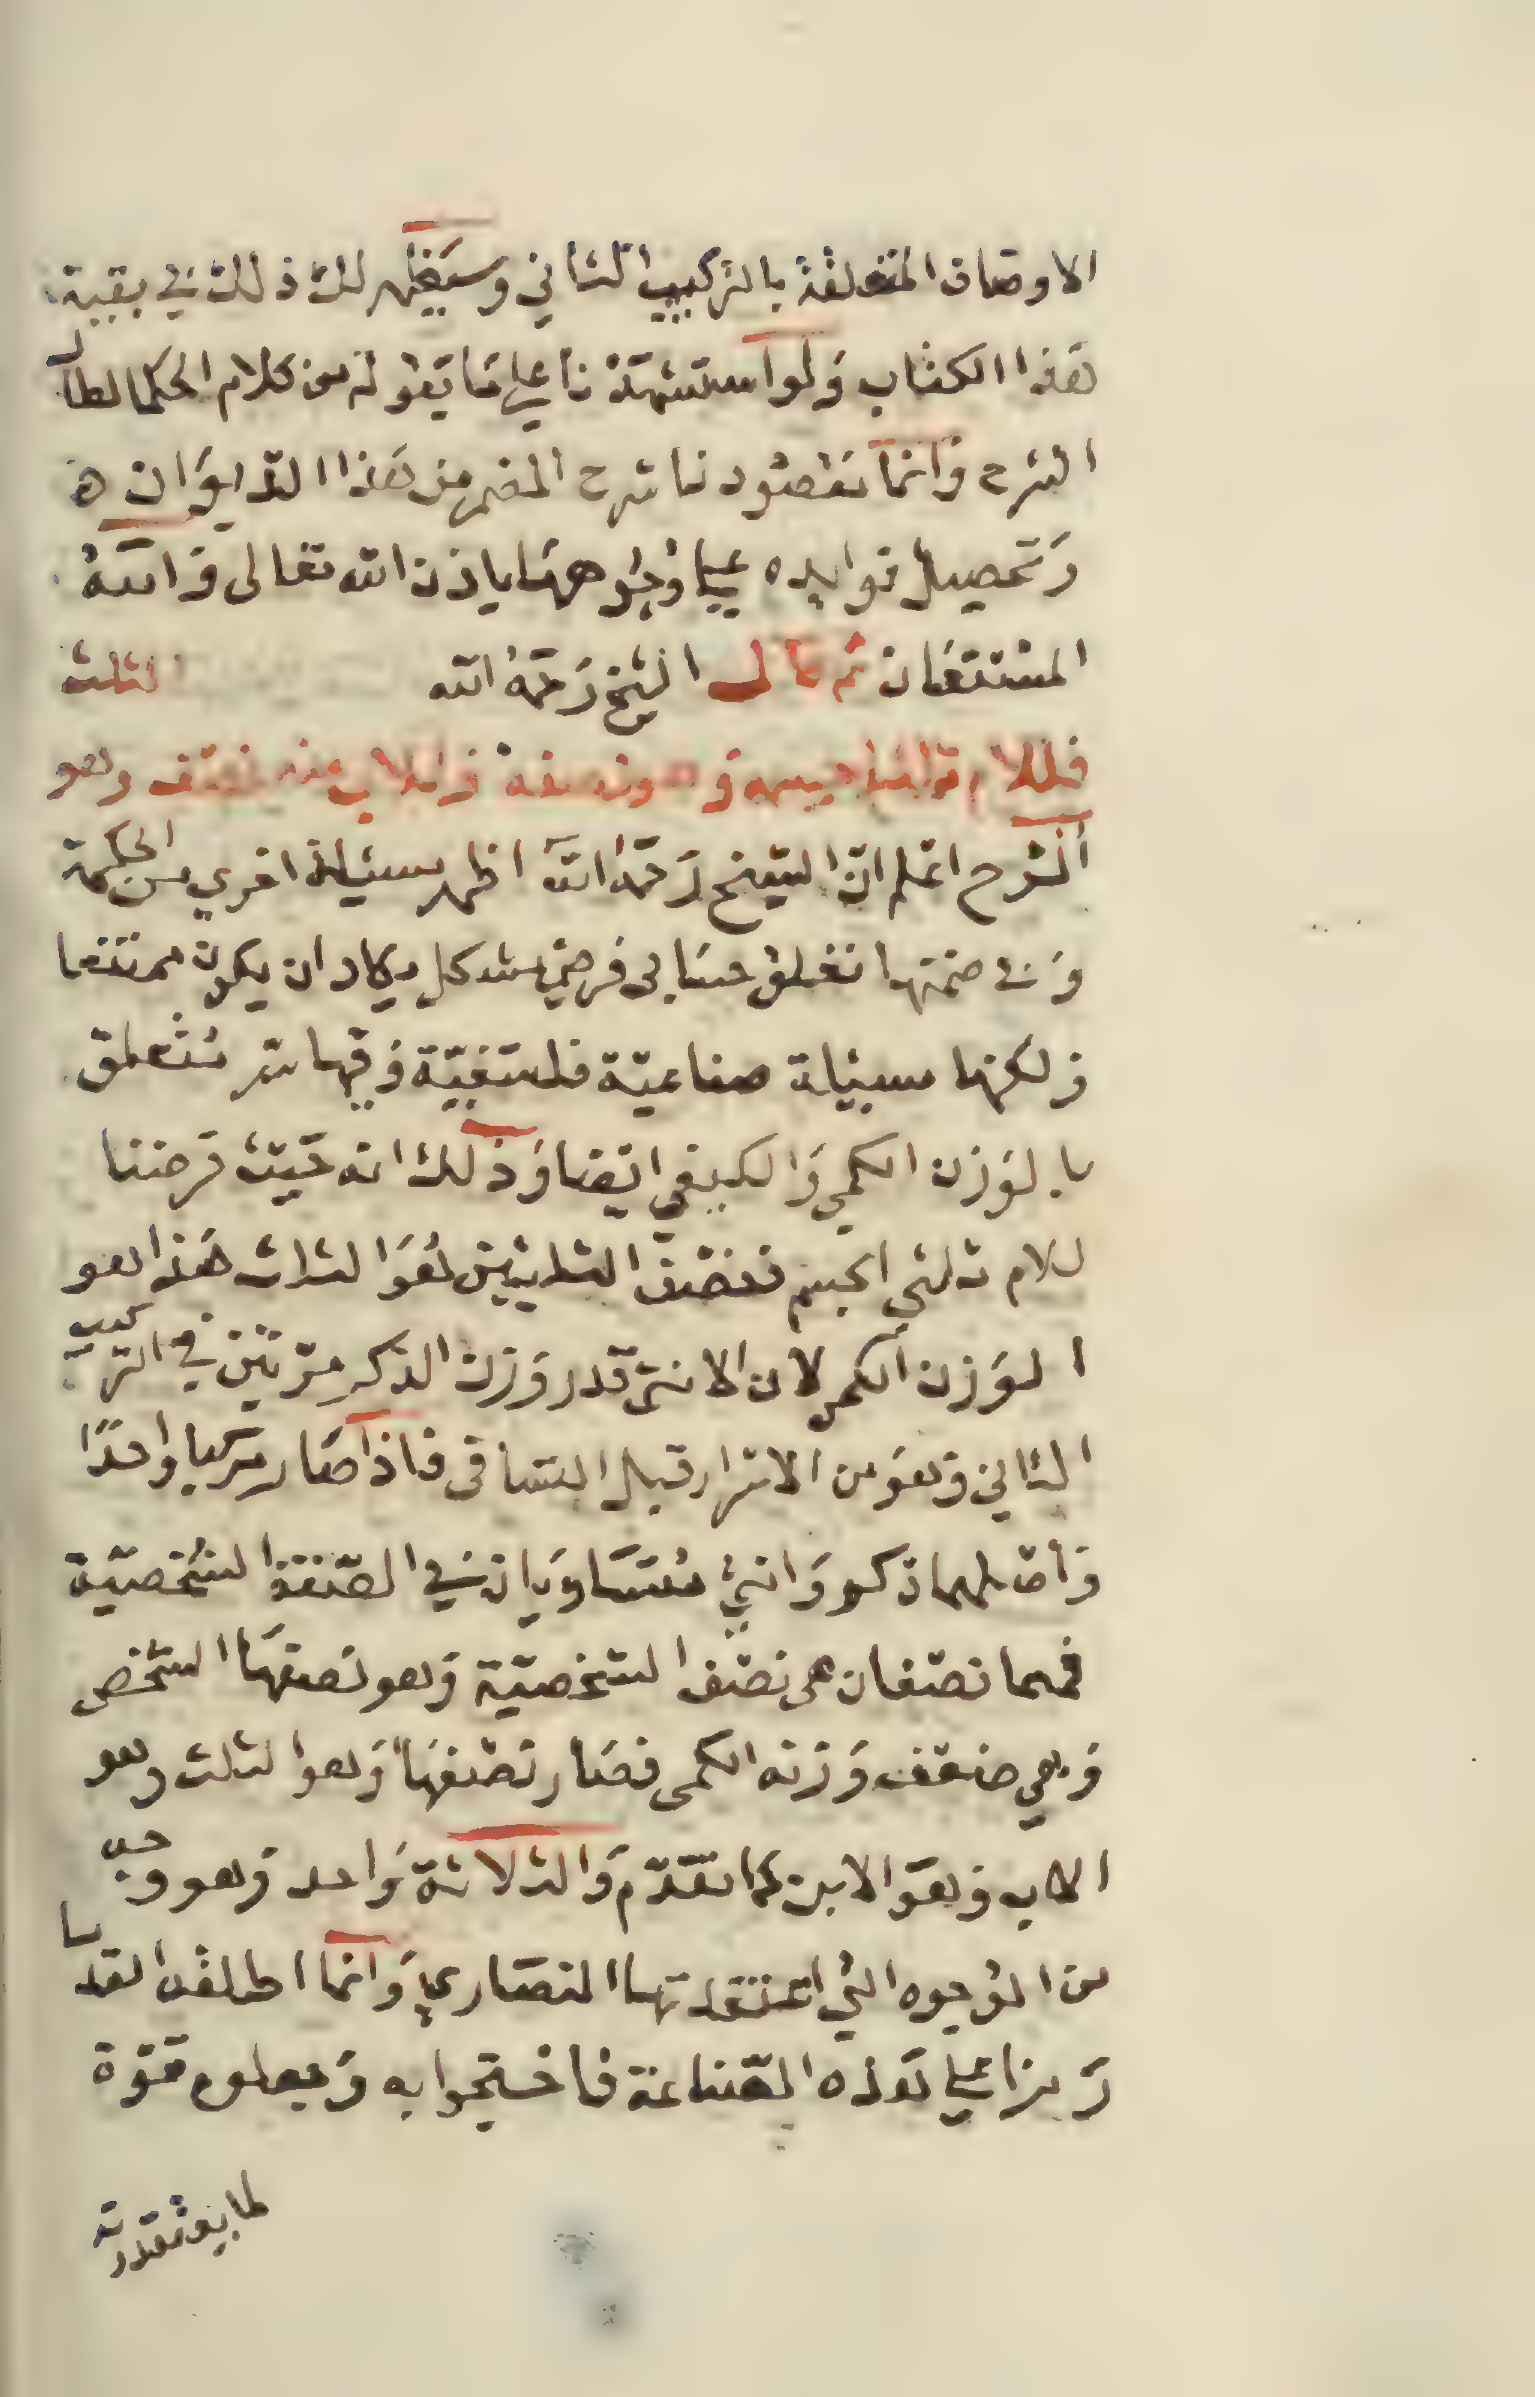 الاوصاف المتعلقة بالتركيب الثاني وسيظهر لك ذلك في بقية
هذا الكتاب ولو استشهدنا على ما نقوله من كلام الحكما لطال
الشرح وانما مقصودنا شرح المضمر من هذا الديوان ه
وتحصيل فوايده على وجوهها باذن الله تعالى والله
المستعان ثم قال الشيخ رحمه الله الثلث
فللام ونصفه وللاب ضعف وهو
الشرح اعلم ان الشيخ رحمه الله اظهر مسئلة اخرى من الحكمة
وفي ضمنها تعلق حسابى فرضي مشكل يكاد ان يكون ممتنعا
ولكنها مسئلة صناعية فلسفية وفيها سر متعلق
بالوزن الكمي والكيفي ايضا وذلك انه حيث فرضنا
للام ثلثي الجسم فنصف الثلثين هو الثلث هذا هو
الوزن الكمى لان الانثى قدر وزن الذكر مرتين في التركيب
الثاني وهو من الاسرار قبل التساقى فاذا صار مركبا واحدا
واصلهما ذكر وانثى متساويان في الصفة الشخصية
فهما نصفان هى نصف الشخصية وهو نصفها الشخص
وهي ضعف وزنه الكمى فصار نصفها وهو الثلث وهو
الاب وهو الابن كما تقدم والثلاثة واحد وهو وجه
من الوجوه التي اعتقدتها النصارى وانما اطلقه القدما
رمزا على هذه الصناعة فاحتجوا به وجعلوه قوة
لما يعتقدونه